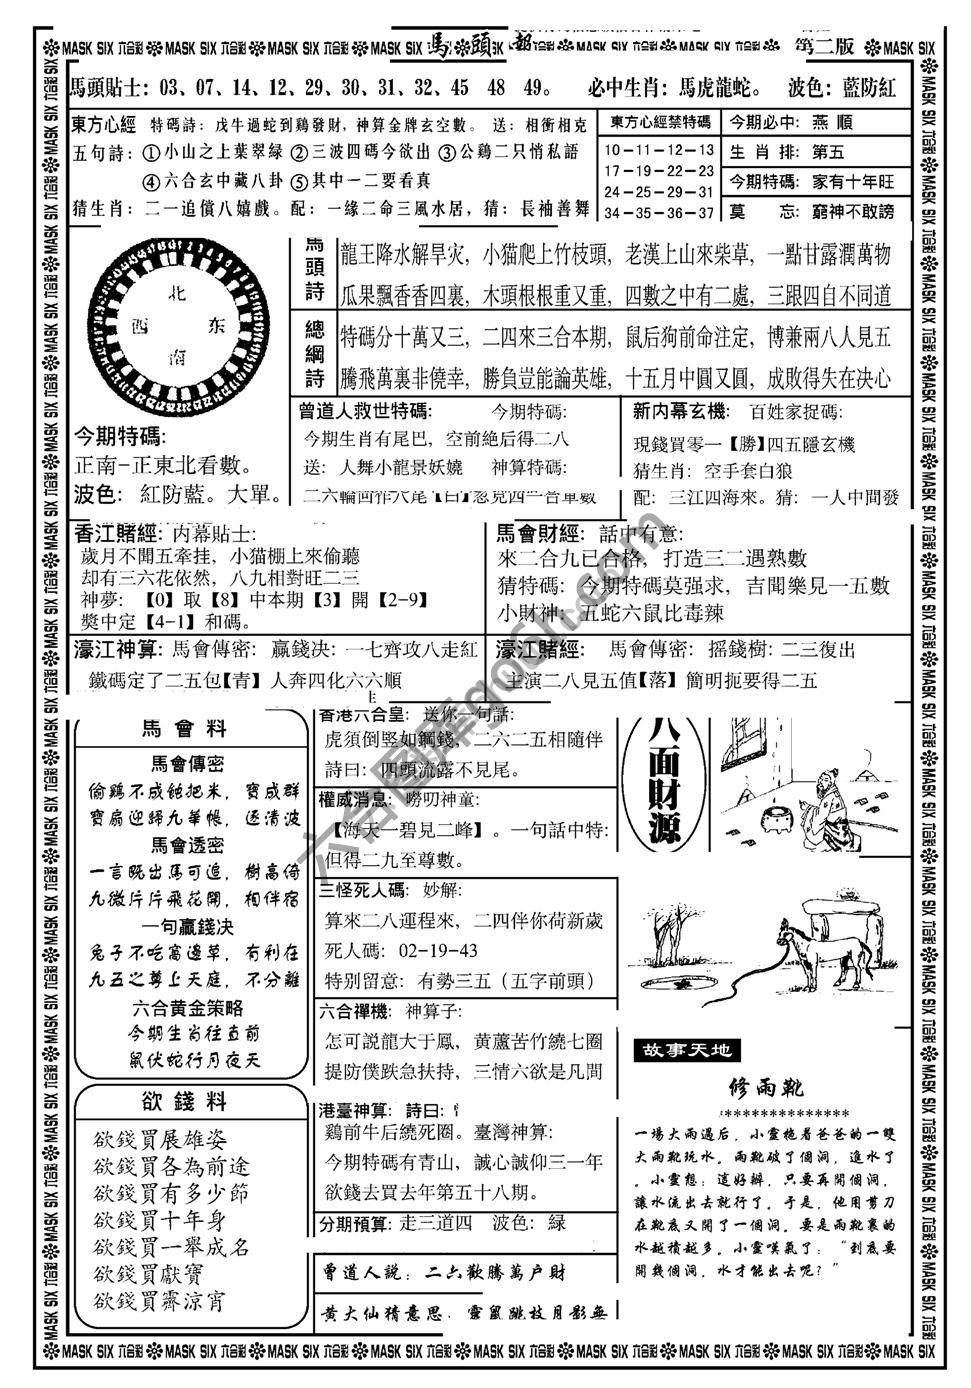 馬 頭 報
第二版
馬頭貼士：03、07、14、12、29、30、31、32、45 48 49。 必中生肖：馬虎龍蛇。 波色：藍防紅
東方心經 特碼詩：戊牛過蛇到鷄發財，神算金牌玄空數。 送：相衝相克
五句詩：①小山之上葉翠緑 ②三波四碼今欲出 ③公鷄二只悄私語
④六合玄中藏八卦 ⑤其中一二要看真
猜生肖：二一追償八嬉戲。配：一緣二命三風水居，猜：長袖善舞
東方心經禁特碼
10-11-12-13
17-19-22-23
24-25-29-31
34-35-36-37
今期必中：燕 順
生 肖 排：第五
今期特碼：家有十年旺
莫 忘：窮神不敢謗
北
西 东
南
今期特碼：
正南-正東北看數。
波色：紅防藍。大單。
馬頭詩
龍王降水解旱灾，小猫爬上竹枝頭，老漢上山來柴草，一點甘露潤萬物
瓜果飄香香四裏，木頭根根重又重，四數之中有二處，三跟四自不同道
總綱詩
特碼分十萬又三，二四來三合本期，鼠后狗前命注定，博兼兩八人見五
騰飛萬裏非僥幸，勝負豈能論英雄，十五月中圓又圓，成敗得失在决心
曾道人救世特碼： 今期特碼：
今期生肖有尾巴，空前絶后得二八
送：人舞小龍景妖嬈 神算特碼：
新内幕玄機：百姓家捉碼：
現錢買零一【勝】四五隱玄機
猜生肖：空手套白狼
配：三江四海來。猜：一人中間發
香江賭經：内幕貼士：
歲月不聞五牽挂，小猫棚上來偷聽
却有三六花依然，八九相對旺二三
神夢：【0】取【8】中本期【3】開【2-9】
獎中定【4-1】和碼。
馬會財經：話中有意：
來二合九已合格，打造三二遇熟數
猜特碼：今期特碼莫强求，吉聞樂見一五數
小財神：五蛇六鼠比毒辣
濠江神算：馬會傳密：贏錢决：一七齊攻八走紅
鐵碼定了二五包【青】人奔四化六六順
濠江賭經： 馬會傳密：摇錢樹：二三復出
主演二八見五值【落】簡明扼要得二五
馬 會 料
馬會傳密
偷鷄不成蝕把米，寶成群
寶扇迎歸九華帳，逐清波
馬會透密
一言既出馬可追，樹高倚
九微片片飛花開，相伴宿
一句贏錢决
兔子不吃窩邊草，有利在
九五之尊上天庭，不分離
六合黄金策略
今期生肖往直前
鼠伏蛇行月夜天
欲 錢 料
欲錢買展雄姿
欲錢買各為前途
欲錢買有多少節
欲錢買十年身
欲錢買一舉成名
欲錢買獻寶
欲錢買霽涼宵
香港六合皇：送你一句話：
虎須倒竪如鋼錢，二六二五相隨伴
詩曰：四頭流露不見尾。
權威消息：嘮叨神童：
【海天一碧見二峰】。一句話中特：
但得二九至尊數。
三怪死人碼：妙解：
算來二八運程來，二四伴你荷新歲
死人碼：02-19-43
特别留意：有勢三五（五字前頭）
六合禪機：神算子：
怎可説龍大于鳳，黄蘆苦竹繞七圈
提防僕跌急扶持，三情六欲是凡間
港臺神算：詩曰：
鷄前牛后繞死圈。臺灣神算：
今期特碼有青山，誠心誠仰三一年
欲錢去買去年第五十八期。
分期預算：走三道四 波色：緑
曾道人説：二六歡騰萬户財
黄大仙猜意思：靈鼠跳枝月影無
八面財源
故事天地
修雨靴
***************
一場大雨過后，小靈拖着爸爸的一雙
大雨靴玩水。雨靴破了個洞，進水了
。小靈想：這好辦，只要再開個洞，
讓水流出去就行了。于是，他用剪刀
在靴底又開了一個洞。要是雨靴裏的
水越積越多。小靈嘆氣了："到底要
開幾個洞，水才能出去呢？"
六合图库go6h.com
MASK SIX 六合彩